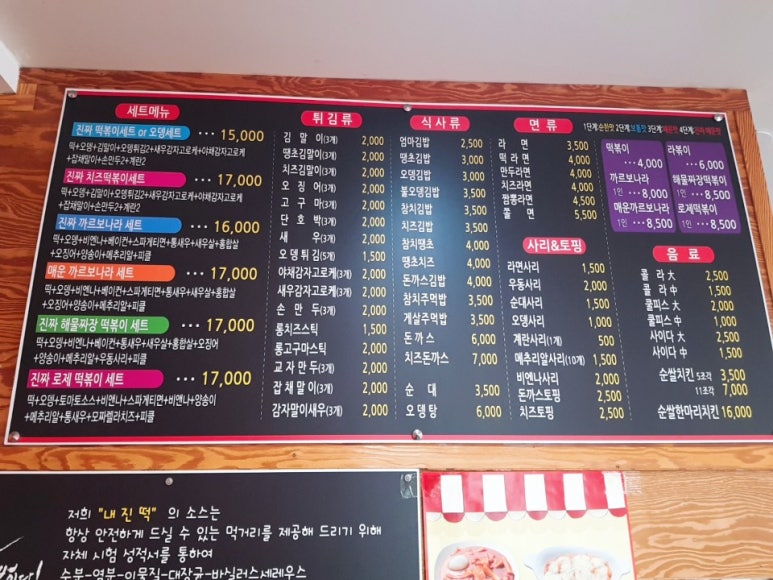 세트메뉴
진짜 떡볶이세트 or 오뎅세트 ··· 15,000
떡+오뎅+김말이+오뎅튀김2+새우감자고로케+야채감자고로케
+잡채말이+손만두2+계란2
진짜 치즈떡볶이세트 ··· 17,000
떡+오뎅+김말이+오뎅튀김2+새우감자고로케+야채감자고로케
+잡채말이+손만두2+계란2
진짜 까르보나라 세트 ··· 16,000
떡+오뎅+비엔나+베이컨+스파게티면+통새우+새우살+홍합살
+오징어+양송이+메추리알+피클
매운 까르보나라 세트 ··· 17,000
떡+오뎅+비엔나+베이컨+스파게티면+통새우+새우살+홍합살
+오징어+양송이+메추리알+피클
진짜 해물짜장 떡볶이 세트 ··· 17,000
떡+오뎅+비엔나+스파게티면+통새우+새우살+홍합살+오징어
+양송이+메추리알+우동사리+피클
진짜 로제 떡볶이 세트 ··· 17,000
떡+오뎅+토마토소스+비엔나+스파게티면+비엔나+양송이
+메추리알+통새우+모짜렐라치즈+피클
튀김류
김 말 이(3개) 2,000
땡초김말이(3개) 2,000
치즈김말이(3개) 2,000
오 징 어(3개) 2,000
고 구 마(3개) 2,000
단 호 박(3개) 2,000
새 우(3개) 2,000
오뎅튀김(5개) 1,500
야채감자고로케(3개) 2,000
새우감자고로케(3개) 2,000
손 만 두(3개) 2,000
롱치즈스틱 1,500
롱고구마스틱 2,000
교자만두(3개) 2,000
잡채말이(3개) 2,000
감자말이새우(3개) 2,000
식사류
엄마김밥 2,500
땡초김밥 3,000
오뎅김밥 3,000
불오뎅김밥 3,500
참치김밥 3,500
치즈김밥 3,500
참치땡초 4,000
땡초치즈 4,000
돈까스김밥 4,000
참치주먹밥 3,500
게살주먹밥 3,500
돈 까 스 6,000
치즈돈까스 7,000
순 대 3,500
오 뎅 탕 6,000
면류
라 면 3,500
떡 라 면 4,000
만두라면 4,000
치즈라면 4,000
짬뽕라면 4,500
쫄 면 5,500
사리&토핑
라면사리 1,500
우동사리 2,000
순대사리 1,500
오뎅사리 1,000
계란사리(1개) 500
메추리알사리(10개) 1,500
비엔나사리 2,000
돈까스토핑 2,000
치즈토핑 2,000
1단계:순한맛 2단계:보통맛 3단계:매운맛 4단계:진짜 매운맛
떡볶이
··· 4,000
까르보나라
1인 ··· 8,000
매운까르보나라
1인 ··· 8,500
라볶이
··· 6,000
해물짜장떡볶이
1인 ··· 8,500
로제떡볶이
1인 ··· 8,500
음 료
콜 라 大 2,500
콜 라 中 1,500
쿨피스 大 2,000
쿨피스 中 1,000
사이다 大 2,500
사이다 中 1,500
순쌀치킨 5조각 3,500
11조각 7,000
순쌀한마리치킨 16,000
저희 "내 진 떡" 의 소스는
항상 안전하게 드실 수 있는 먹거리를 제공해 드리기 위해
자체 시험 성적서를 통하여
수분-염분-이물질-대장균-바실러스세레우스